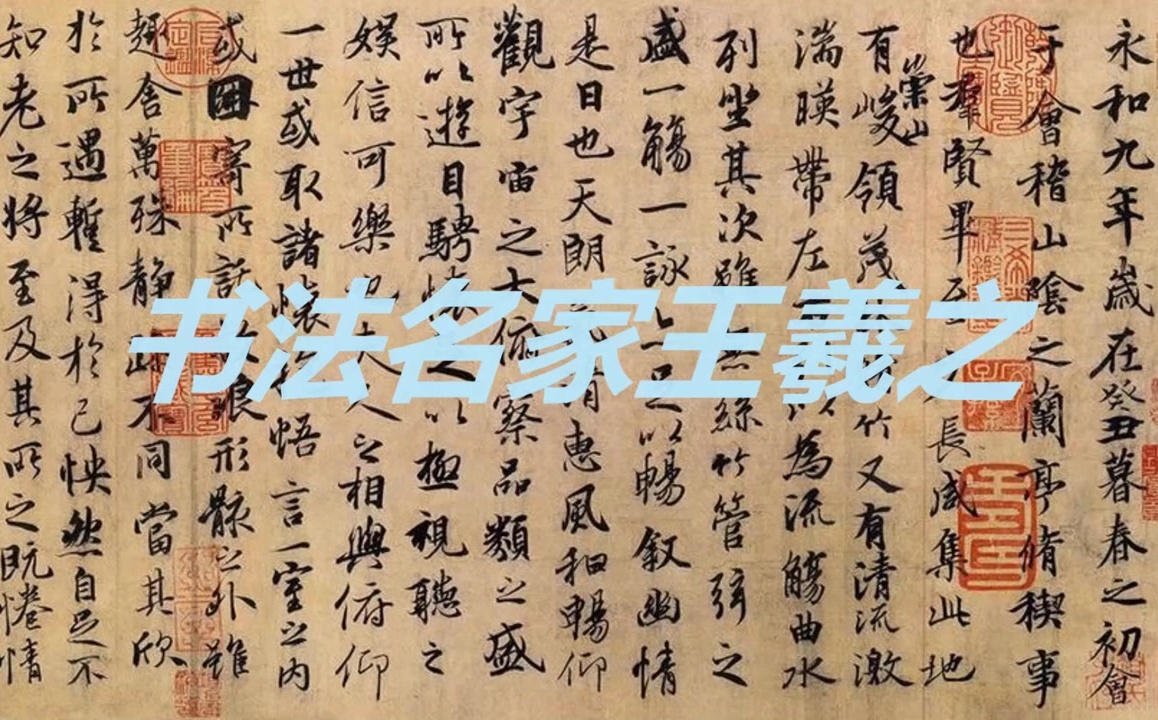 书法名家王羲之
永和九年歲在癸丑暮春之初會
于會稽山陰之蘭亭脩稧事
也羣賢畢至長咸集此地
有崇山峻領茂竹又有清流激
湍暎帶左以為流觴曲水
列坐其次雖無絲竹管弦之
盛一觴一詠足以暢叙幽情
是日也天朗清惠風和暢仰
觀宇宙之大俯察品類之盛
所以遊目騁懷以極視聽之
娛信可樂也夫人之相與俯仰
一世或取諸懷悟言一室之內
或因寄所託放浪形骸之外雖
趣舍萬殊静躁不同當其欣
於所遇暫得於己怏然自足不
知老之將至及其所之既惓情